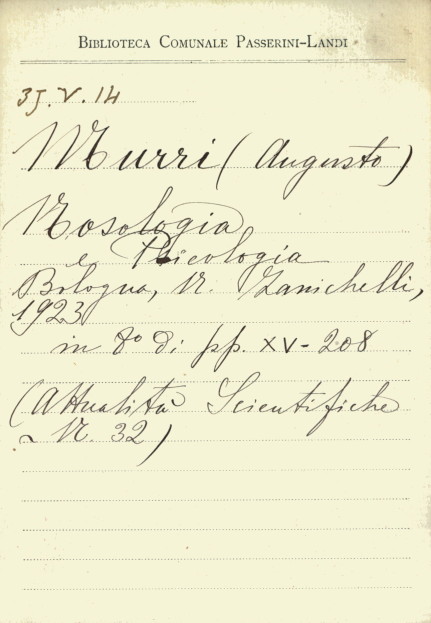 BIBLIOTECA COMUNALE PASSERINI-LANDI
3J.V.14
Murri (Augusto)
Nosologia
e Psicologia
Bologna, N. Zanichelli,
1923
in 8° di pp. XV-208
(Attualità Scientifiche
N. 32)